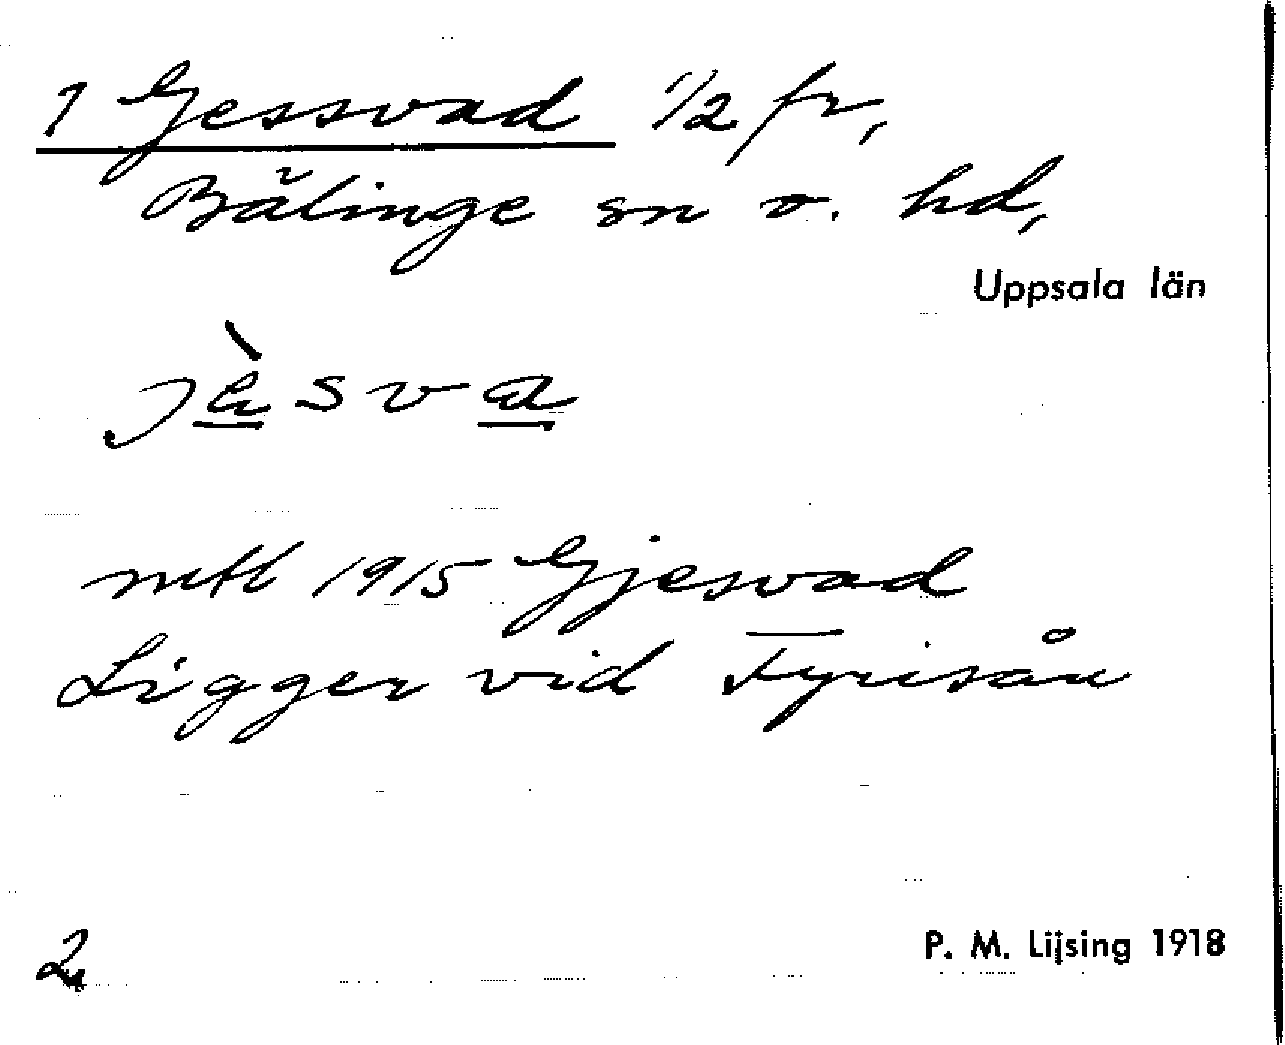 1 Gessvad 1/2 fr,
Bälinge sn o. hd,
Uppsala län
jàsva
mtl 1915 Gjesvad
Ligger vid Fyrisån
2
P. M. Lijsing 1918